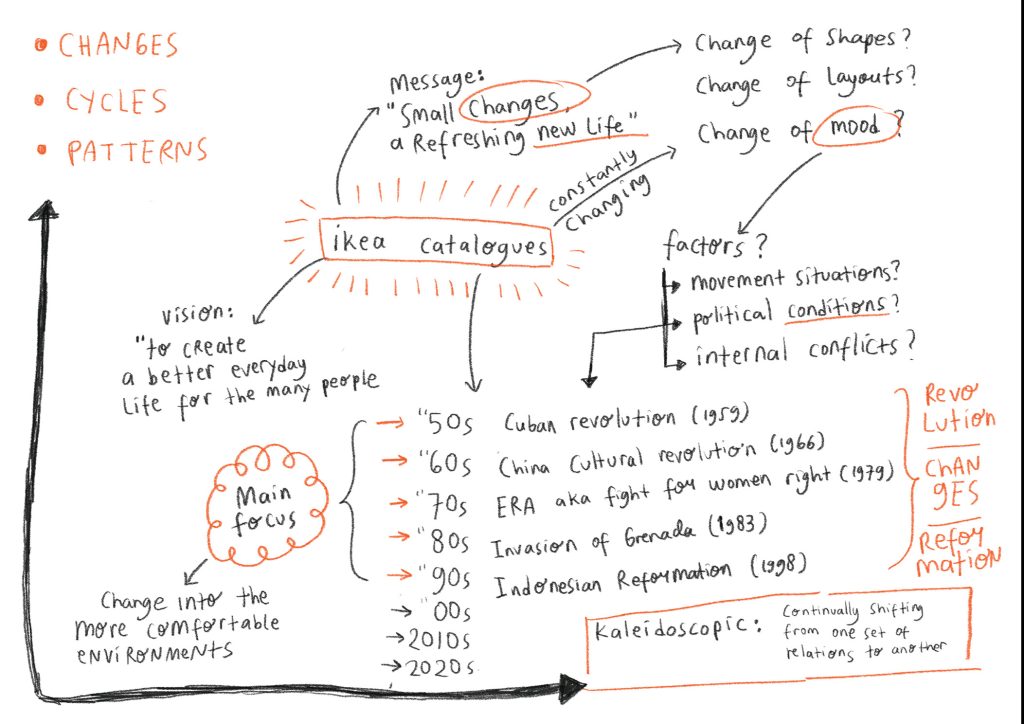 • CHANGES
• CYCLES
• PATTERNS
Message:
"Small Changes,
a Refreshing new Life"
Change of Shapes?
Change of Layouts?
Change of mood?
constantly
Changing
ikea catalogues
factors?
movement situations?
political conditions?
internal conflicts?
vision:
"to create
a better everyday
Life for the many people
Main
focus
Change into the
more comfortable
environments
"50s Cuban revolution (1959)
"60s China Cultural revolution (1966)
"70s ERA aka fight for women right (1979)
"80s Invasion of Grenada (1983)
"90s Indonesian Reformation (1998)
"00s
2010s
2020s
Revo
Lution
ChAN
gES
Refor
mation
Kaleidoscopic:
Continually shifting
from one set of
relations to another